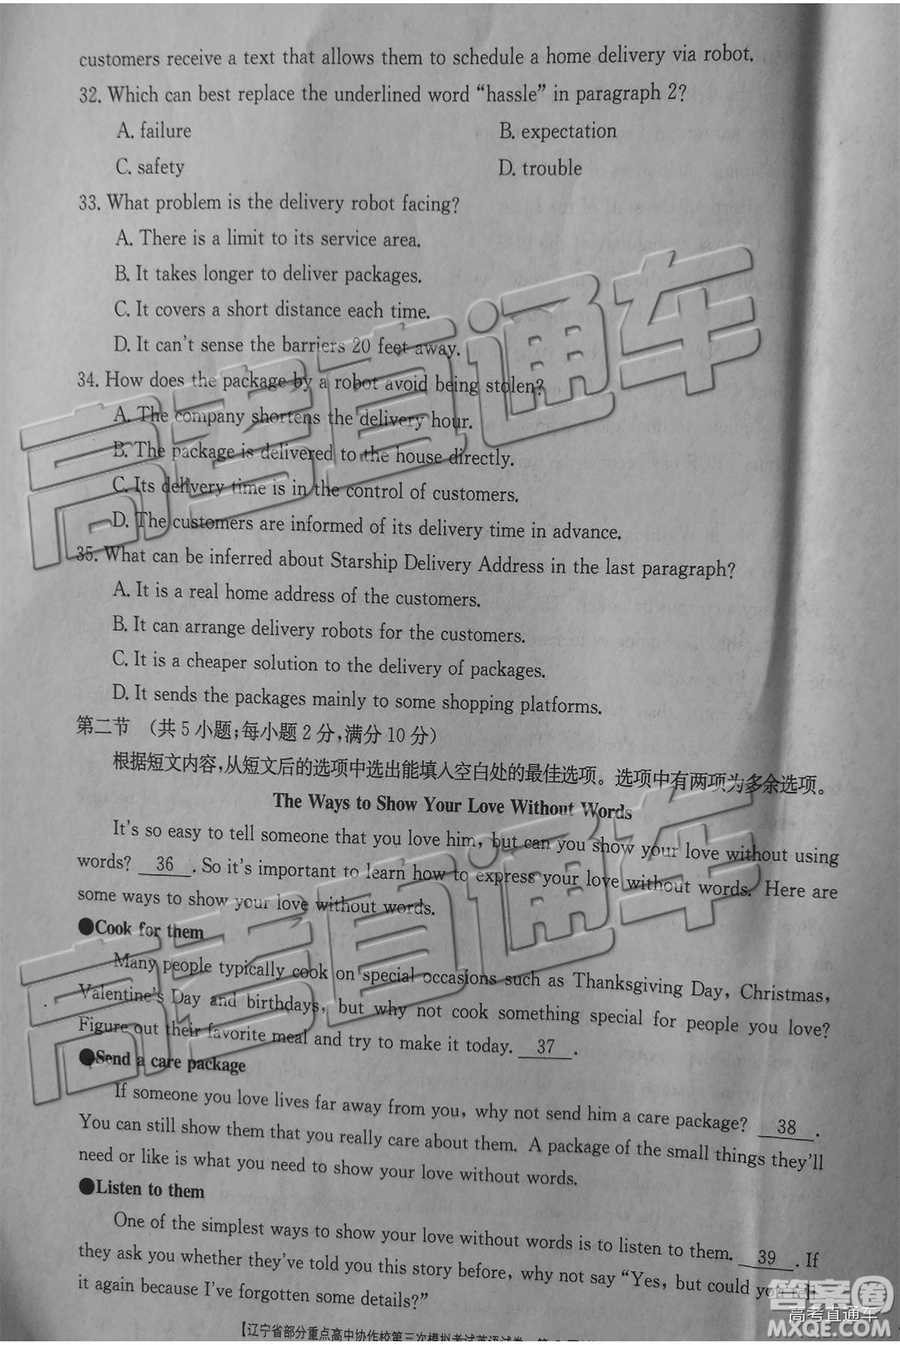 customers receive a text that allows them to schedule a home delivery via robot.
32. Which can best replace the underlined word “hassle” in paragraph 2?
A. failure B. expectation
C. safety D. trouble
33. What problem is the delivery robot facing?
A. There is a limit to its service area.
B. It takes longer to deliver packages.
C. It covers a short distance each time.
D. It can't sense the barriers 20 feet away.
34. How does the package by a robot avoid being stolen?
A. The company shortens the delivery hour.
B. The package is delivered to the house directly.
C. Its delivery time is in the control of customers.
D. The customers are informed of its delivery time in advance.
35. What can be inferred about Starship Delivery Address in the last paragraph?
A. It is a real home address of the customers.
B. It can arrange delivery robots for the customers.
C. It is a cheaper solution to the delivery of packages.
D. It sends the packages mainly to some shopping platforms.
第二节 (共5小题;每小题2分,满分10分)
根据短文内容,从短文后的选项中选出能填入空白处的最佳选项。选项中有两项为多余选项。
The Ways to Show Your Love Without Words
It's so easy to tell someone that you love him, but can you show your love without using
words? 36 . So it's important to learn how to express your love without words. Here are
some ways to show your love without words.
●Cook for them
Many people typically cook on special occasions such as Thanksgiving Day, Christmas,
Valentine's Day and birthdays, but why not cook something special for people you love?
Figure out their favorite meal and try to make it today. 37 .
●Send a care package
If someone you love lives far away from you, why not send him a care package? 38 .
You can still show them that you really care about them. A package of the small things they'll
need or like is what you need to show your love without words.
●Listen to them
One of the simplest ways to show your love without words is to listen to them. 39 . If
they ask you whether they've told you this story before, why not say “Yes, but could you tell
it again because I've forgotten some details?”
【辽宁省部分重点高中协作校第三次模拟考试英语试卷
高考直通车
高考直通车
答案卷
高考直通车
MXQE.COM